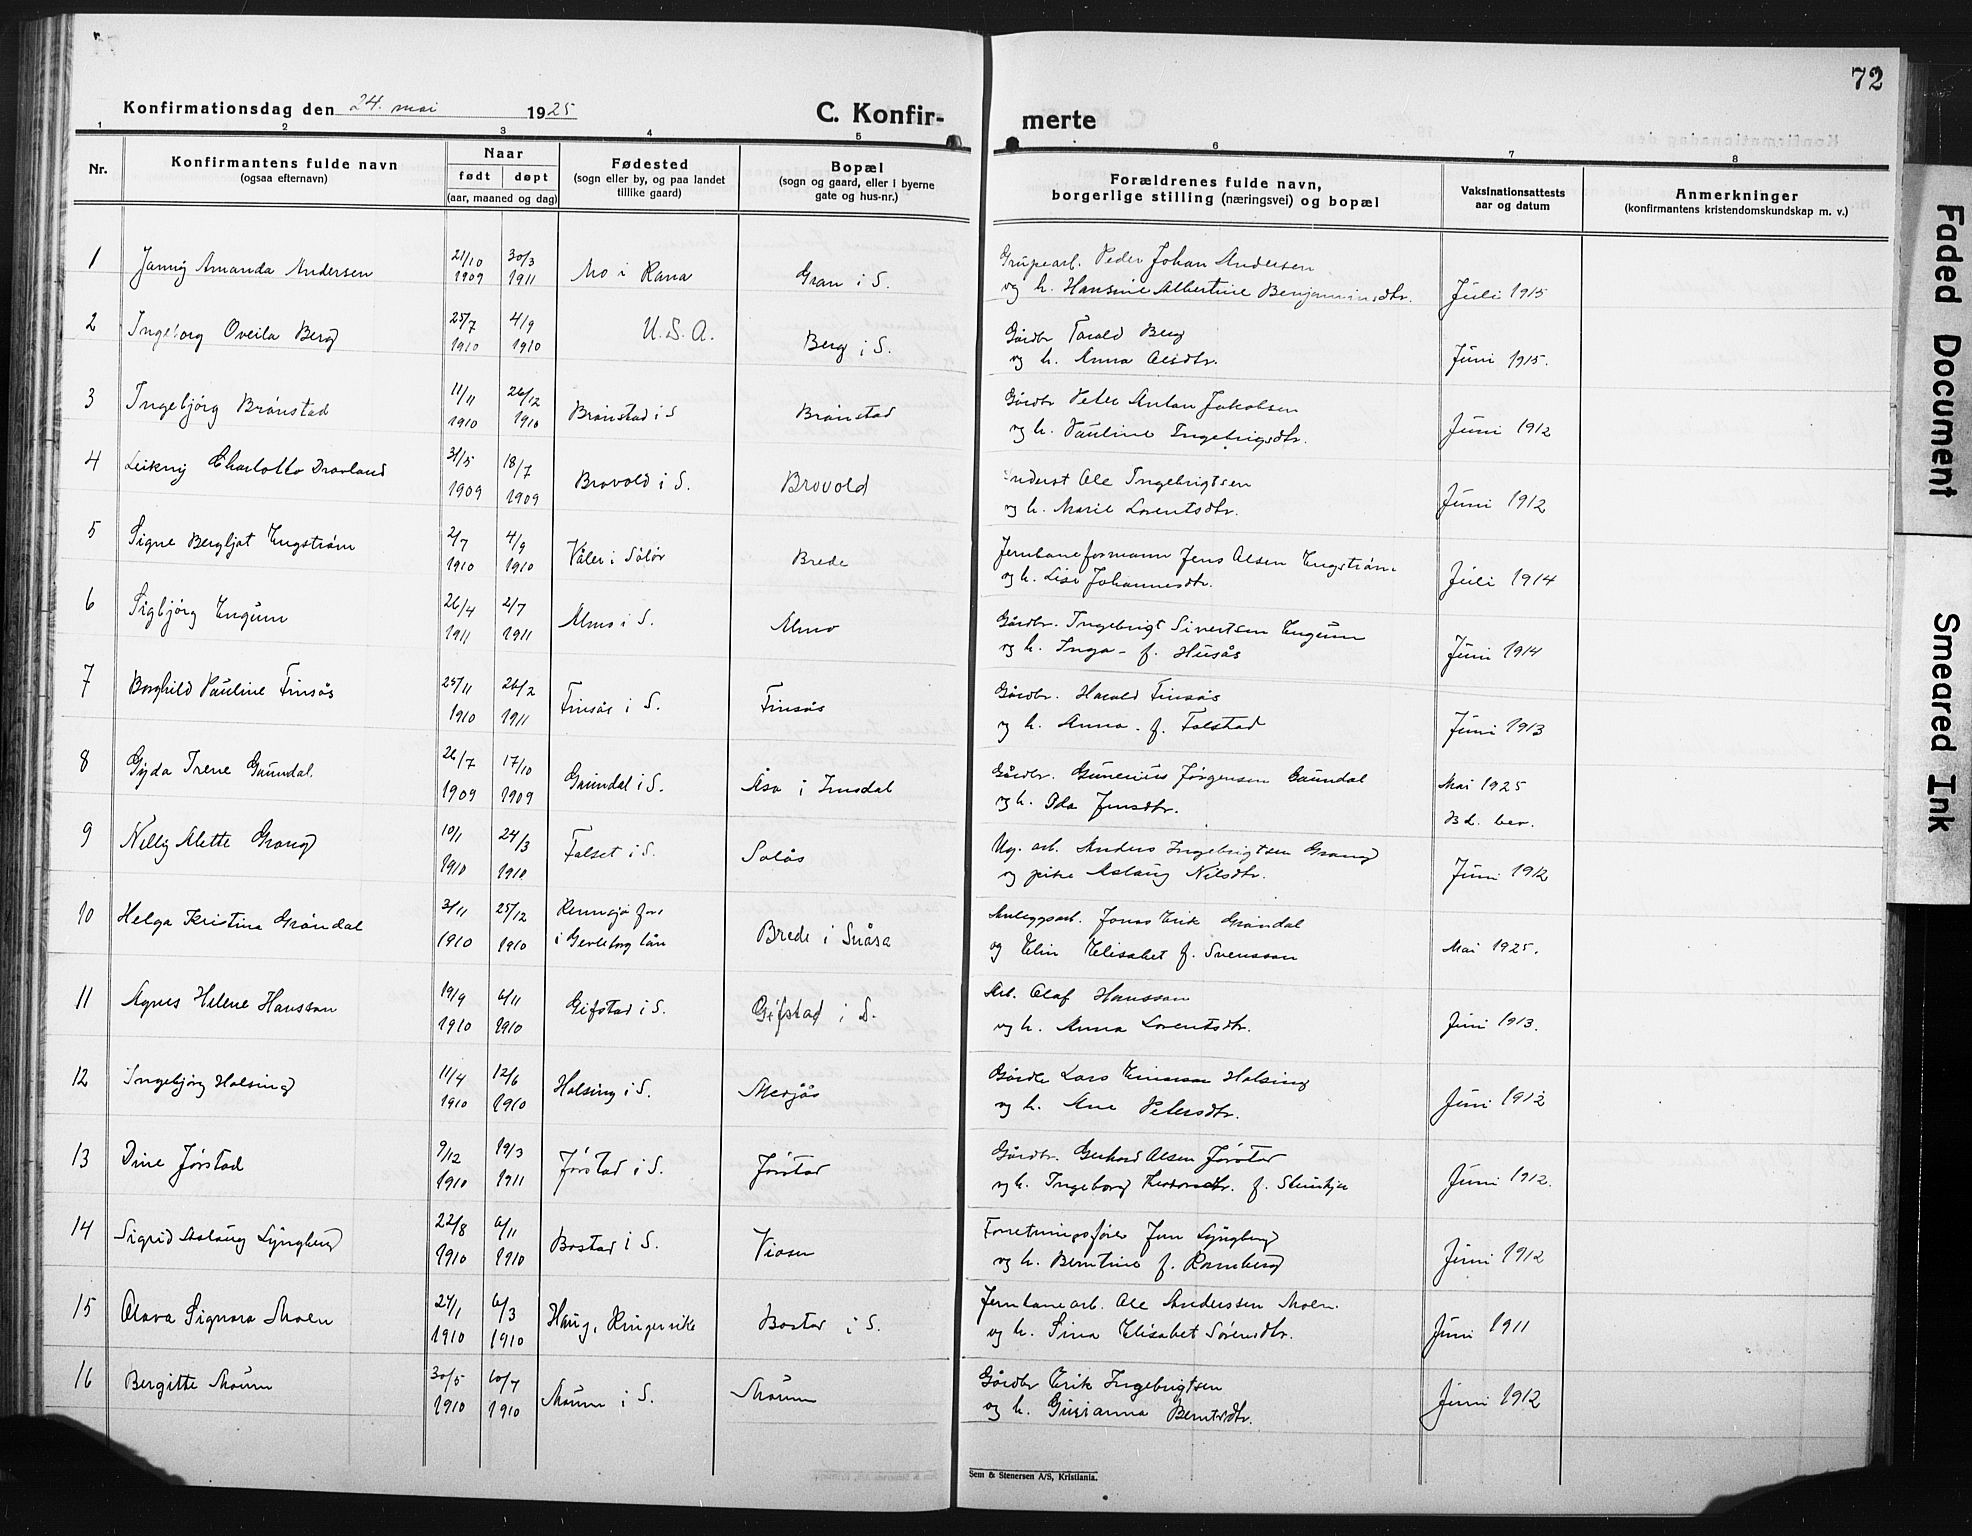 72
Konfirmationsdag den 24. mai 1925
C. Konfir-
merte
1 2 3 4 5 6 7 8
Nr.
Konfirmantens fulde navn
(ogsaa efternavn)
Naar
født døpt
(aar, maaned og dag)
Fødested
(sogn eller by, og paa landet
tillike gaard)
Bopæl
(sogn og gaard, eller i byerne
gate og hus-nr.)
Forældrenes fulde navn,
borgerlige stilling (næringsvei) og bopæl
Vaksinationsattests
aar og datum
Anmerkninger
(konfirmantens kristendomskundskap m. v.)
1 Jannig Amanda Andersen 21/10 1909 30/3 1911 Mo i Rana Gran i S.
Grubearb. Peder Johan Andersen
og h. Hansine Albertine Benjaminsdtr. Juli 1915
2 Ingeborg Oveila Berg 25/7 1910 4/9 1910 U.S.A. Berg i S.
Gårdbr Torald Berg
og h. Anna Olsdtr. Juni 1915.
3 Ingebjørg Brønstad 11/11 1910 26/12 1910 Brønstad i S Brønstad
Gårdbr Peter Anton Jakobsen
og h. Pauline Ingebrigsdtr. Juni 1912
4 Leikny Charlotte Dravland 31/5 1909 18/7 1909 Brovold i S. Brovold
Inderst Ole Ingebrigtsen
og h. Marie Lorentsdtr. Juni 1912
5 Signe Bergljot Engstrøm 2/7 1910 4/9 1910 Våler i Solør Brede
Jernbaneformann Jens Olsen Engstrøm
og h. Lise Johannesdtr. Juli 1914
6 Sigbjørg Engum 26/4 1911 2/7 1911 Almo i S. Almo
Gårdbr. Ingebrigt Sivertsen Engum
og h. Inga - f. Husås Juni 1914
7 Borghild Pauline Finsås 25/11 1910 26/2 1911 Finsås i S. Finsås
Gårdbr. Harald Finsås
og h. Anna - f. Folstad Juni 1913
8 Gyda Irene Gaundal. 26/7 1909 17/10 1909 Gaundal i S. Åsa i Imsdal
Gårdbr. Gunerius Jørgensen Gaundal
og h. Ida Jensdtr. Mai 1925
Bl. bev.
9 Nelly Alette Grong 10/1 1910 24/3 1910 Folset i S. Solås
Ug. arb. Anders Ingebrigtsen Grong
og pike Aslaug Nilsdtr. Juni 1912
10 Helga Kristina Grøndal 3/11 1910 25/12 1910 i Gevleborg län Brede i Snåsa
Anleggsarb. Jonas Erik Grøndal
og Elin Elisabet f. Svensson Mai 1925.
11 Agnes Helene Hansson 19/9 1910 6/11 1910 Gifstad i S. Gifstad i S.
Arb. Olaf Hansson
og h. Anna Lorentsdtr. Juni 1913.
12 Ingebjørg Holsing 11/4 1910 12/6 1910 Holsing i S. Medjås
Gårdbr Lars Einarsen Holsing
og h. Ane Petersdtr. Juni 1912
13 Dine Jørstad 9/12 1910 19/3 1911 Jørstad i S. Jørstad
Gårdbr. Gerhard Olsen Jørstad
og h. Ingeborg f. Steinkjer Juni 1912.
14 Sigrid Aslaug Lyngberg 22/8 1910 6/11 1910 Bostad i S. Viosen
Forretningsfører Jon Lyngberg
og h. Berntine f. Ramberg Juni 1912
15 Olava Signora Moen 24/1 1910 6/3 1910 Haug, Ringerike Bostad i S.
Jernbanearb. Ole Anderssen Moen.
og h. Sina Elisabet Sørensdtr. Juni 1911
16 Bergitte Moum 30/5 1910 10/7 1910 Moum i S. Moum
Gårdbr Erik Ingebrigtsen
og h. Gurianna Berntsdtr. Juni 1912
Sem & Stenersen A/S, Kristiania.
Faded Document
Smeared Ink